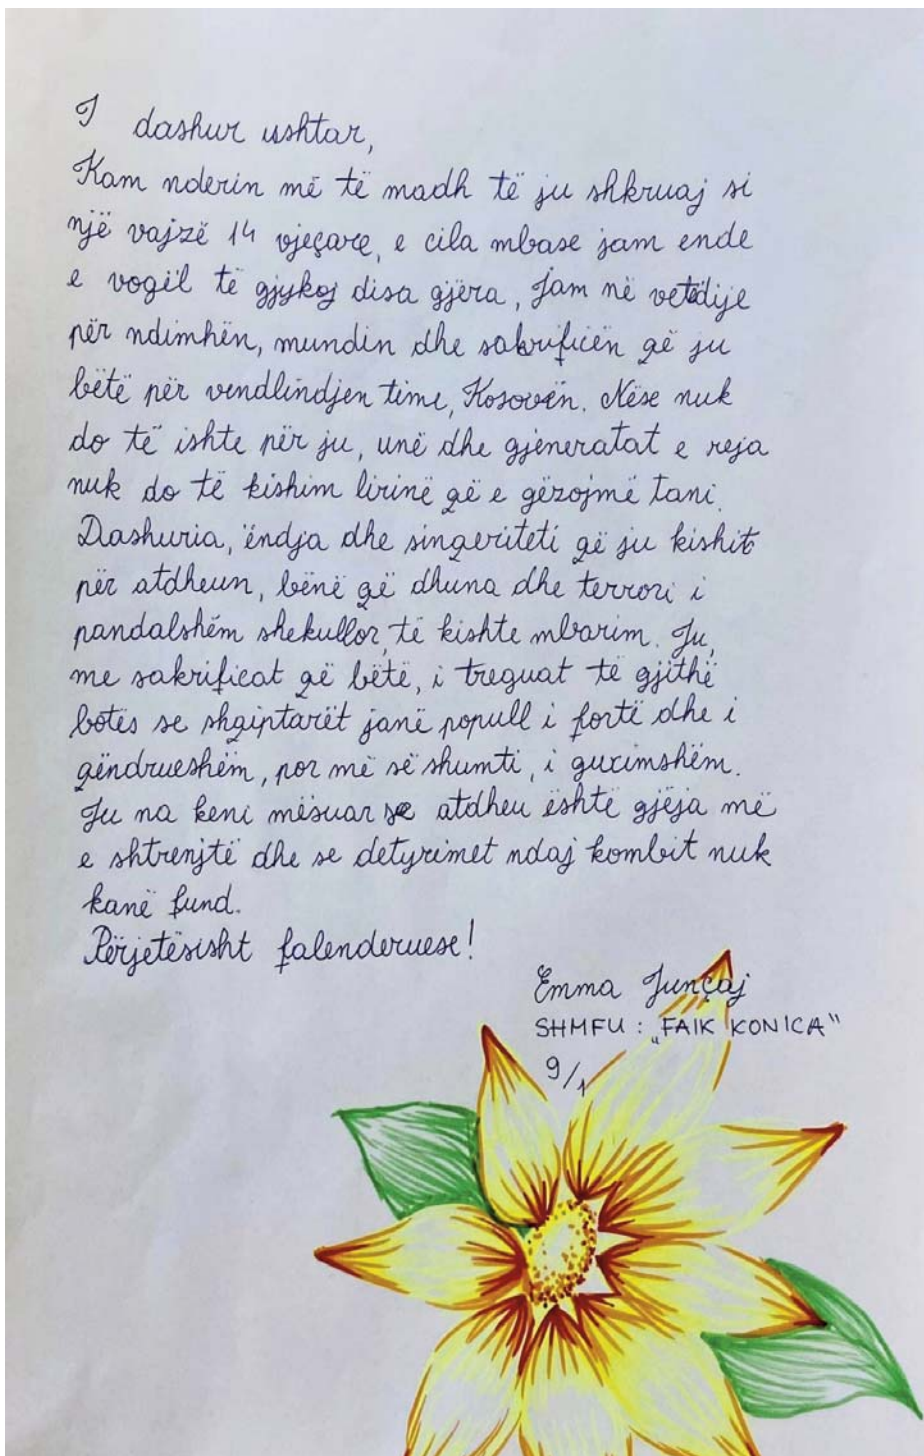 I dashur ushtar,
Kam nderin më të madh të ju shkruaj si
një vajzë 14 vjeçare, e cila mbase jam ende
e vogël të gjykoj disa gjëra, Jam në vetëdije
për ndimhën, mundin dhe sakrificën që ju
bëtë për vendlindjen time, Kosovën. Nëse nuk
do të ishte për ju, unë dhe gjeneratat e reja
nuk do të kishim lirinë që e gëzojmë tani.
Dashuria, ëndja dhe singeriteti që ju kishit
për atdheun, bënë që dhuna dhe terrori i
pandalshëm shekullor, të kishte mbarim. Ju,
me sakrificat që bëtë, i treguat të gjithë
botës se shqiptarët janë popull i fortë dhe i
qëndrueshëm, por më së shumti, i guximshëm.
Ju na keni mësuar se atdheu është gjëja më
e shtrenjtë dhe se detyrimet ndaj kombit nuk
kanë fund.
Përjetësisht falenderuese!
Emma Junçaj
SHMFU : „FAIK KONICA"
9/1